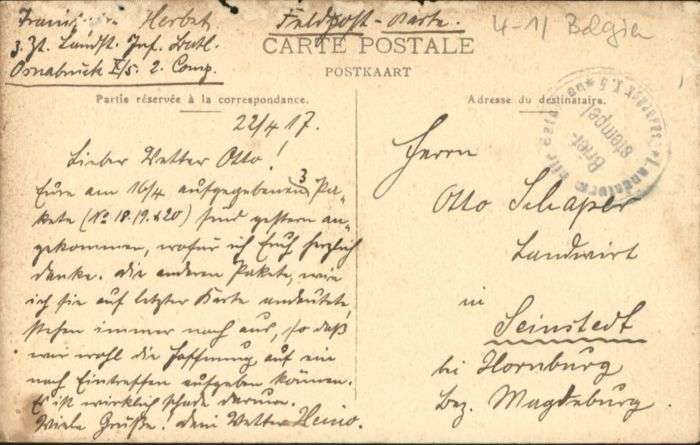 Herbst
Feldpost-Karte.
4-1/ Belgien
z. Zt. Landst. Inf. Batl.
Osnabrück X/5. 2. Comp.
CARTE POSTALE
POSTKAART
Partie réservée à la correspondance.
Adresse du destinataire.
Brief-
stempel
22/4 17.
Lieber Vetter Otto!
Eure am 16/4 aufgegebenen 3 Pa-
kete (No 18.19.&20) sind gestern an-
gekommen, wofür ich Euch herzlich
danke. Die anderen Pakete, wie
ich sie auf letzter Karte andeutete,
stehen immer noch aus, so daß
wir wohl die Hoffnung auf ein
noch Eintreffen aufgeben können.
Es ist wirklich schade darum.
Viele Grüße. Dein Vetter Heino.
Herrn
Otto Schaper
Landwirt
in
Seinstedt
bei Hornburg
Bez. Magdeburg.